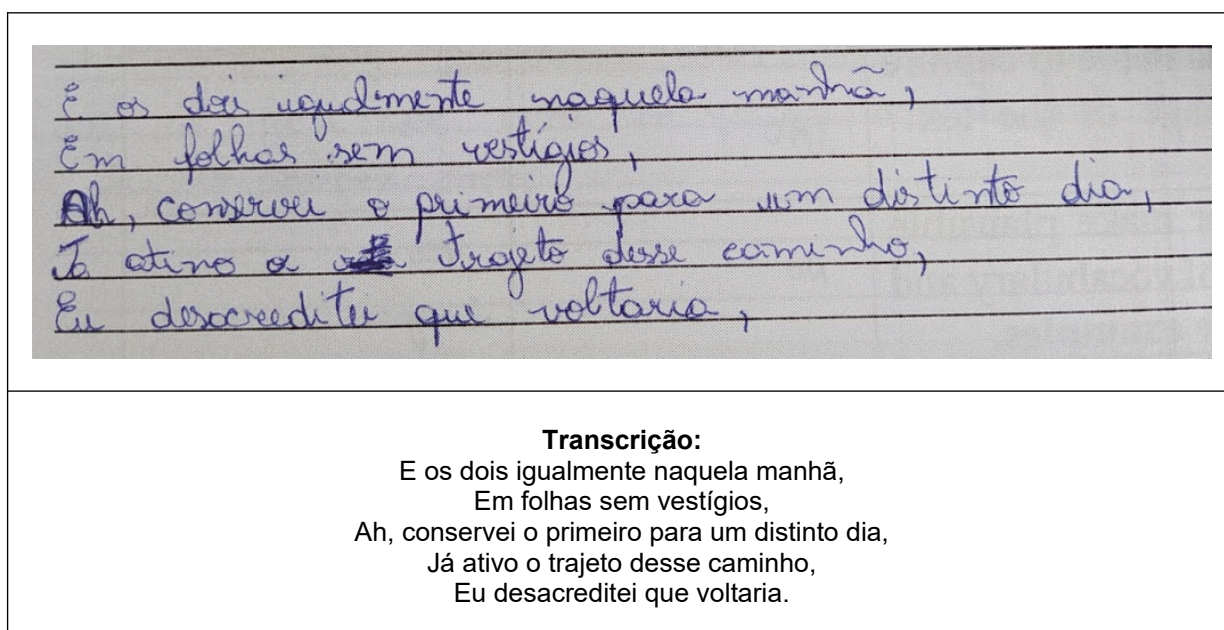 E os dois igualmente naquela manhã,
Em folhas sem vestígios,
Ah, conservei o primeiro para um distinto dia,
Já atino o trajeto desse caminho,
Eu desacreditei que voltaria,
Transcrição:
E os dois igualmente naquela manhã,
Em folhas sem vestígios,
Ah, conservei o primeiro para um distinto dia,
Já ativo o trajeto desse caminho,
Eu desacreditei que voltaria.